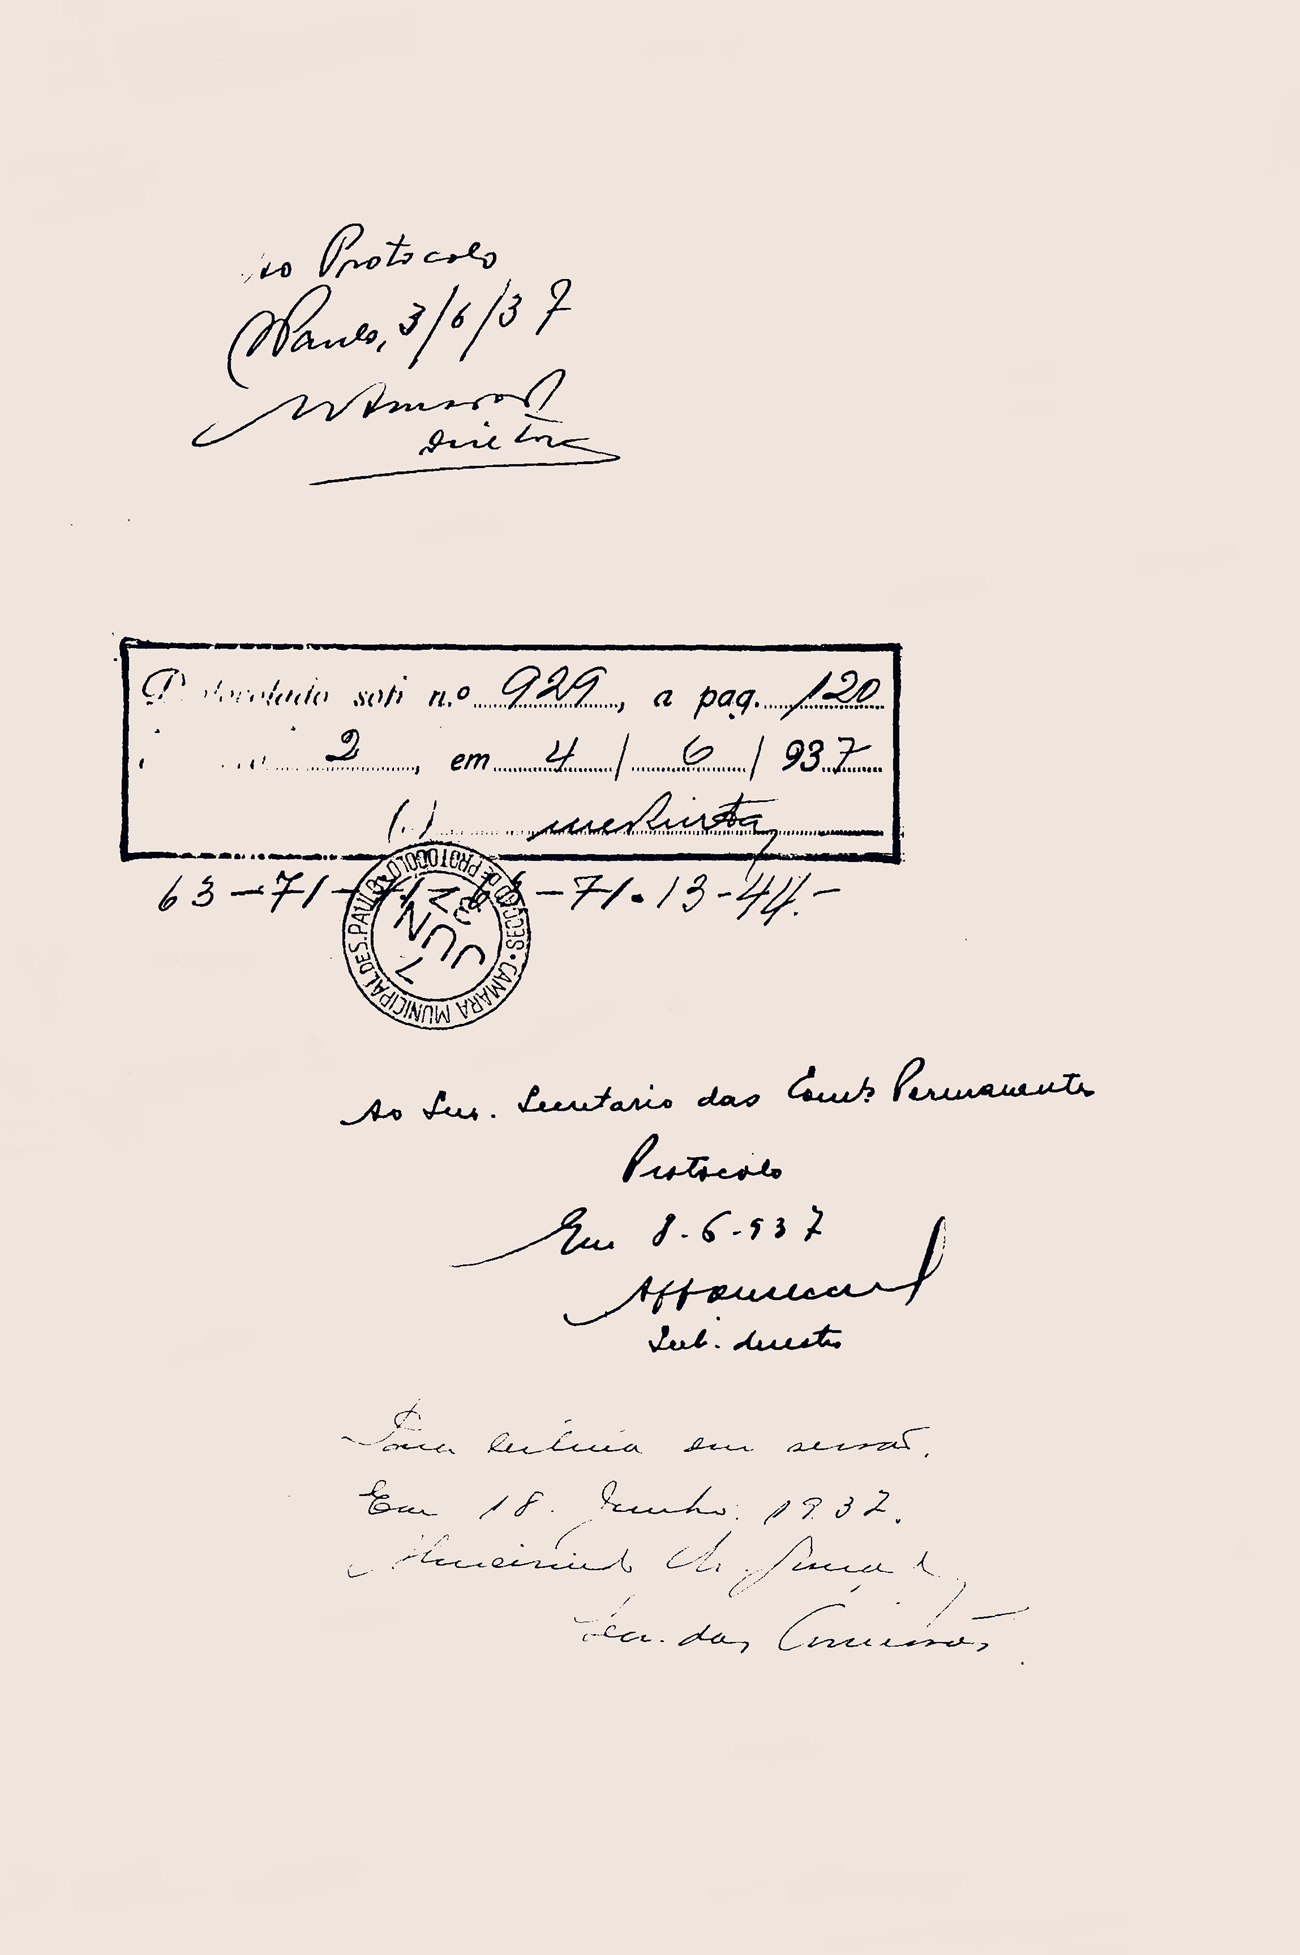 Ao Protocolo
S Paulo, 3/6/37
Diretor
Protocolado sob n.º 929, a pag. 120
2, em 4 / 6 / 937
(.)
63-71-71-63-71.13-44.-
SECÇÃO DE PROTOCOLO • CAMARA MUNICIPAL DE S. PAULO
7 JUN 37
Ao Snr. Secretario das Comms Permanentes
Protocolo
Em 8-6-937
Sub. director
Para leitura em sessão.
Em 18. Junho. 1937.
Secr. das Comissões